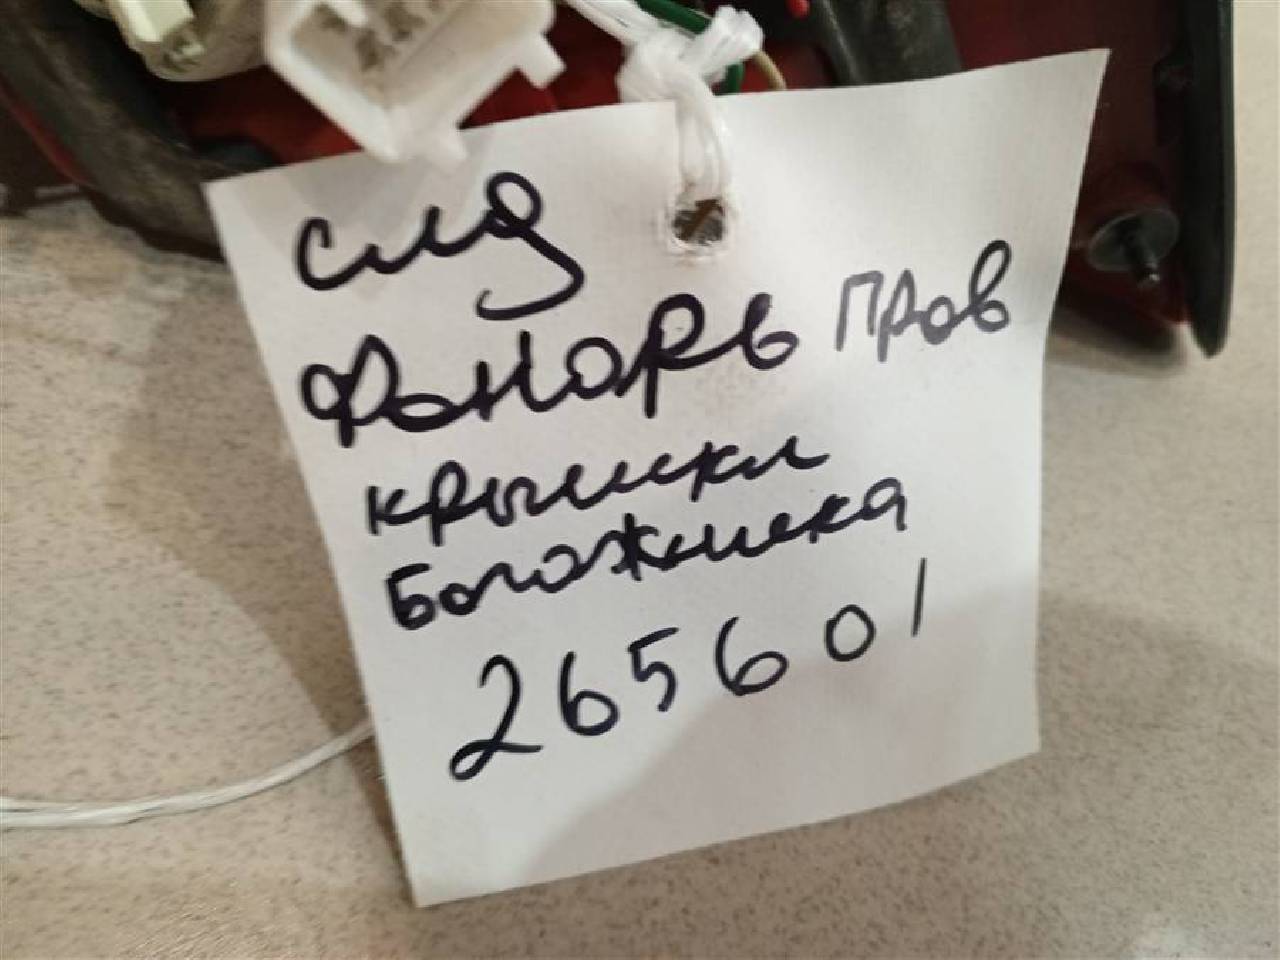 слд
Фонарь прав
крышкл
богожника
265601